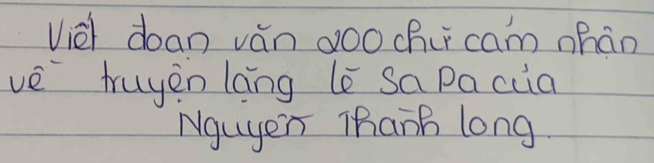 Viết đoạn văn 200 chữ cảm nhận
về truyện lặng lẽ Sa Pa của
Nguyễn Thành long.